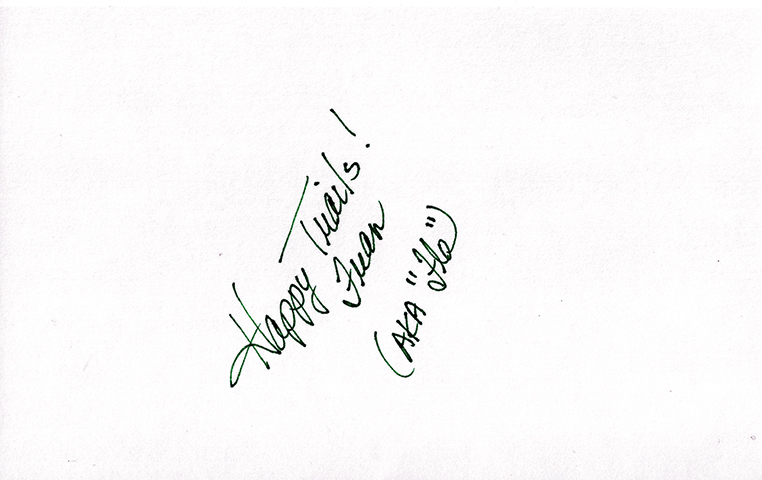 Happy Trails!
Fran
(AKA "Flo")